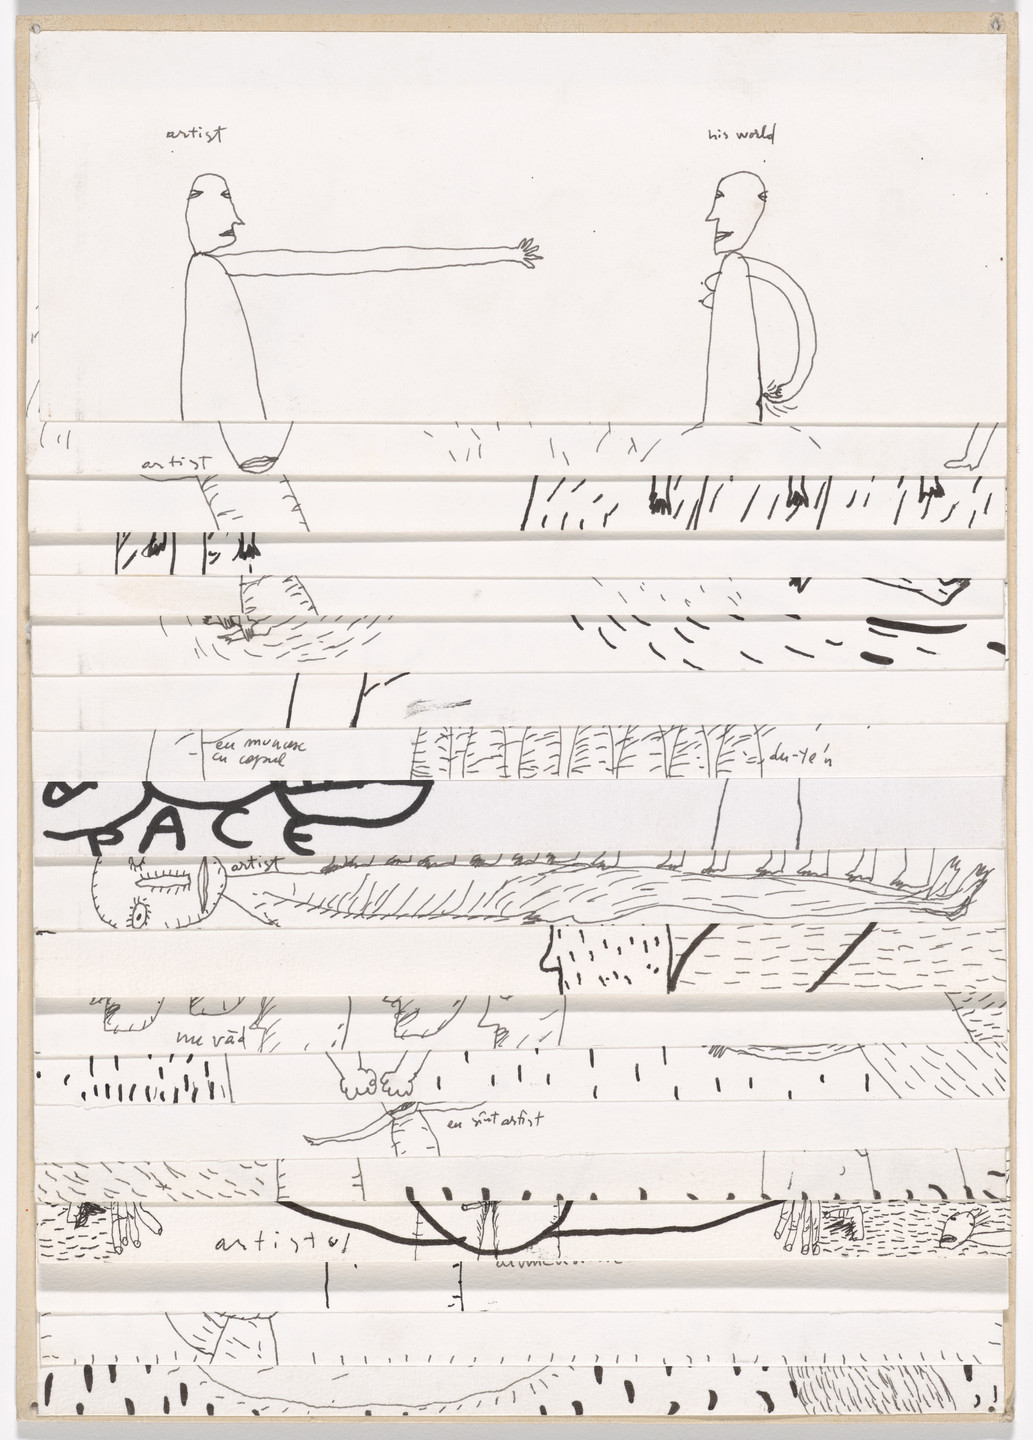 artist
his world
artist
eu muncesc
cu capul
PACE
artist
me văd
eu sînt artist
artistul